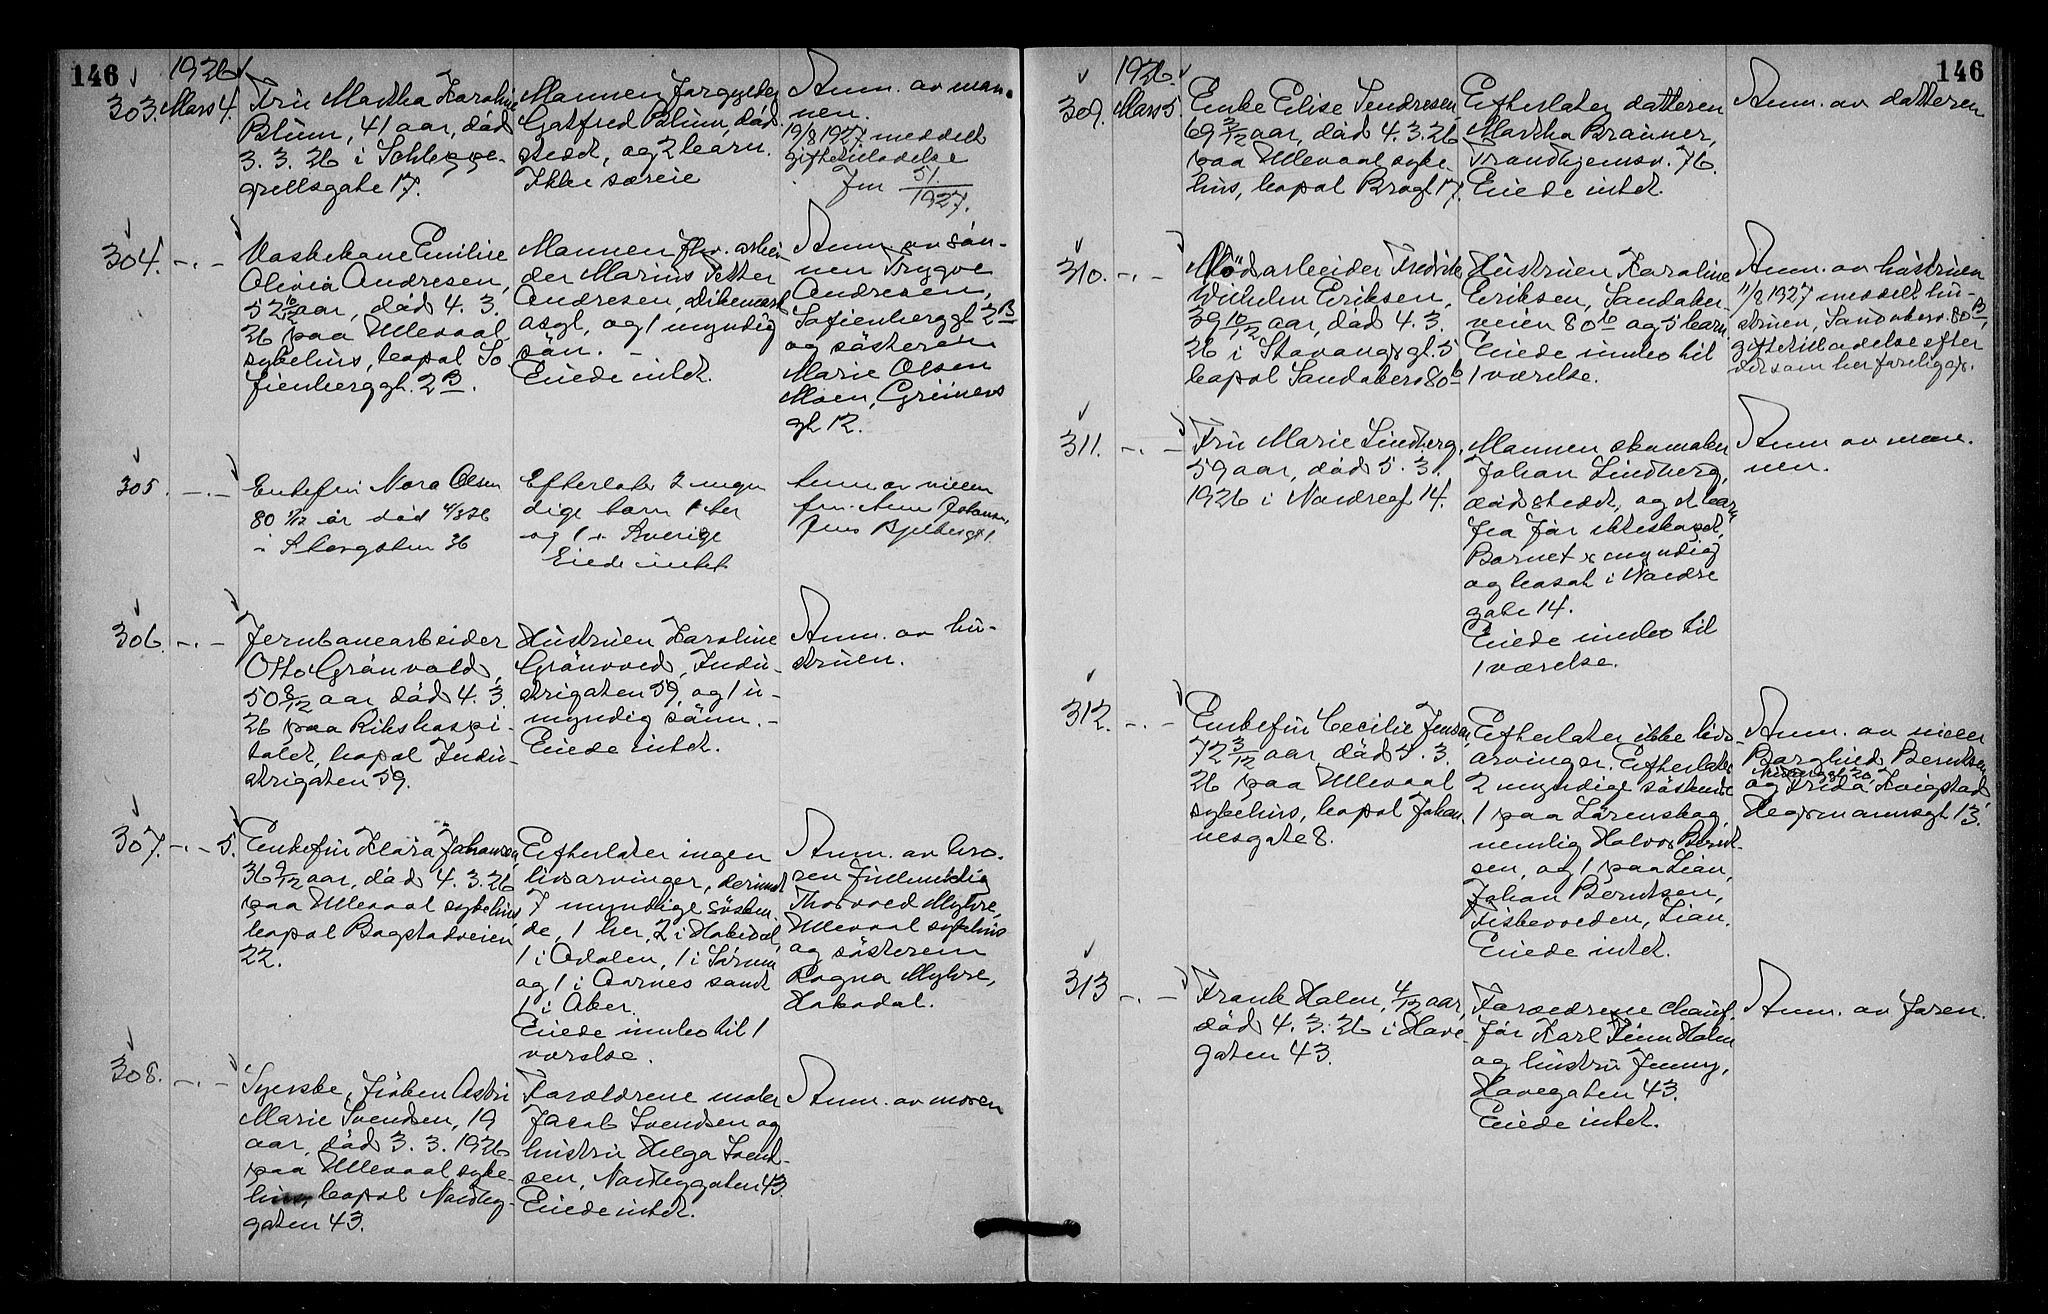 146
1926
303. Mars 4.
Fru Martha Karoline
Blum, 41 aar, død
3. 3. 26 i Schleppe-
grellsgate 17.
Mannen forgylder
Gotfred Blum, død-
stedet, og 2 barn.
Ikke særeie
Anm. av man-
nen.
19/8 1927 meddelt
giftetilladelse
Jnr 51/1927.
304. -.-
Vaskekone Emilie
Olivia Andresen,
52 10/12 aar, død 4. 3.
26 paa Ullevaal
sykehus, bopæl So
fienberggt. 2B.
Mannen fhv. arbei-
der Marius Petter
Andresen, Dikemark
asyl, og 1 myndig
søn. -
Eiede intet.
Anm. av søn-
nen Trygve
Andresen,
Sofienberggt 2B
og søsteren
Marie Olsen
Moen, Grüners
gt 12.
305. -.-
Enkefru Nora Olsen
80 1/12 år død 4/3 26
i Akersgaten 36
Efterlater 2 myn
dige barn 1 her
og 1 i Sverige
Eiede intet
Anm av niesen
frn. Anna Johansen,
Jens Bjelkesgt 1.
306. -.-
Jernbanearbeider
Otto Grønvold,
50 8/12 aar død 4. 3.
26 paa Rikshospi-
talet, bopæl Indu-
strigaten 59.
Hustruen Karoline
Grønvold, Indu-
strigaten 59, og 1 u-
myndig sønn. -
Eiede intet.
Anm. av hu-
struen.
307. -.- 5.
Enkefru Klara Johansen
36 9/12 aar, død 4. 3. 26
paa Ullevaal sykehus
bopæl Bogstadveien
22.
Efterlater ingen
livsarvinger, derimot
7 myndige søsken-
de, 1 her, 2 i Hakedal,
1 i Odalen, 1 i Sørum
og 1 i Aarnes samt
1 i Aker.
Eiede innbo til 1
værelse.
Anm. av bro-
ren fuldmektig
Thorvold Myhre,
Ullevaal sykehus
og søsteren
Ragna Myhre,
Hakadal.
308. -.-
Syerske, frøken Astri
Marie Svendsen, 19
aar, død 3. 3. 1926
paa Ullevaal syke-
hus, bopæl Nordby-
gaten 43.
Forældrene maler
Jacob Svendsen og
hustru Helga Svend-
sen, Nordbygaten 43.
Eiede intet.
Anm. av moren
146
1926.
309. Mars 5.
Enke Elise Tendresen,
69 3/12 aar, død 4. 3. 26
paa Ullevaal syke
hus, bopæl Brogt 17.
Efterlater datteren
Martha Brauner,
Trondhjemsv. 76.
Eiede intet.
Anm. av datteren
310. -.-
Nödsarbeider Fredrik
Wilhelm Eriksen,
39 10/12 aar, død 4. 3.
26 i Stavangrgt. 5
bopæl Sandakerv 80b
Hustruen Karoline
Eriksen, Sandaker
veien 80b og 5 barn
Eiede innbo til
1 værelse.
Anm. av hustruen
11/8 1927 meddelt hu-
struen, Sandakerv. 80B,
giftetilladelse efter
det som her foreligger.
311. -.-
Fru Marie Lindberg,
59 aar, død 5. 3.
1926 i Nordregt. 14.
Mannen skomaker
Johan Lindberg,
dødstedet, og 1 barn
fra før ekteskapet,
Barnet er myndig
og bosat i Nordre
gate 14.
Eiede innbo til
1 værelse.
Anm av man-
nen.
312. -.-
Enkefru Cecilie Jensen,
72 3/12 aar død 4. 3.
26 paa Ullevaal
sykehus, bopæl Johan
nesgate 8.
Efterlater ikke livs-
arvinger. Efterlater
2 myndige søskende
1 paa Lørenskog,
nemlig Halvor Bernt-
sen, og 1 paa Lian,
Johan Berntsen,
Fiskevolden, Lian.
Eiede intet.
Anm. av niecer
Borghild Berntsen
20,
og Frida Kvigstad
Hegermannsgt 13.
313 -.-
Frank Holm, 4/12 aar,
død 4. 3. 26 i Have-
gaten 43.
Forældrene chauf-
før Karl Finn Holm
og hustru Jenny,
Havegaten 43.
Eiede intet.
Anm. av faren.